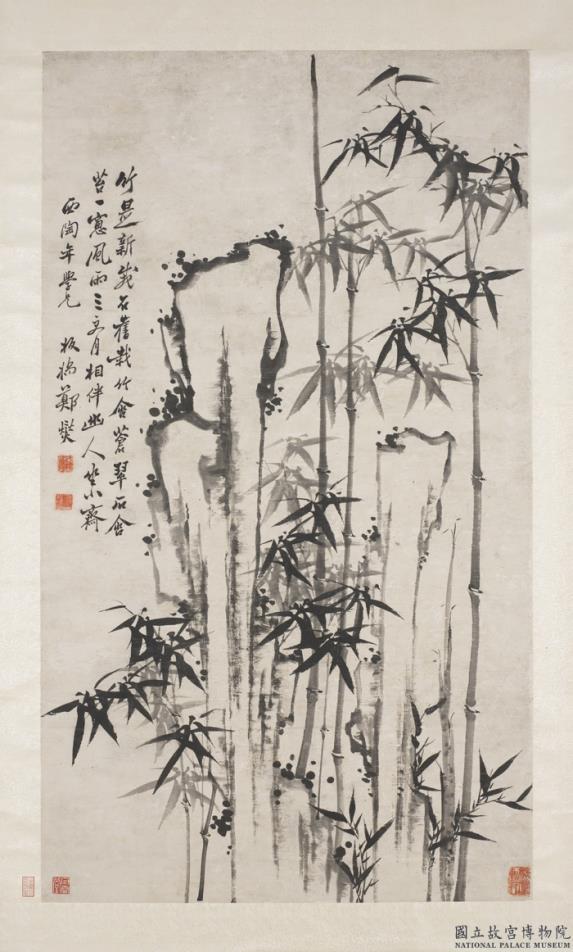 竹是新栽石舊栽竹含蒼翠石含
苔一窻風雨三更月相伴幽人坐小齋
年學兄 板橋鄭燮
國立故宮博物院
NATIONAL PALACE MUSEUM